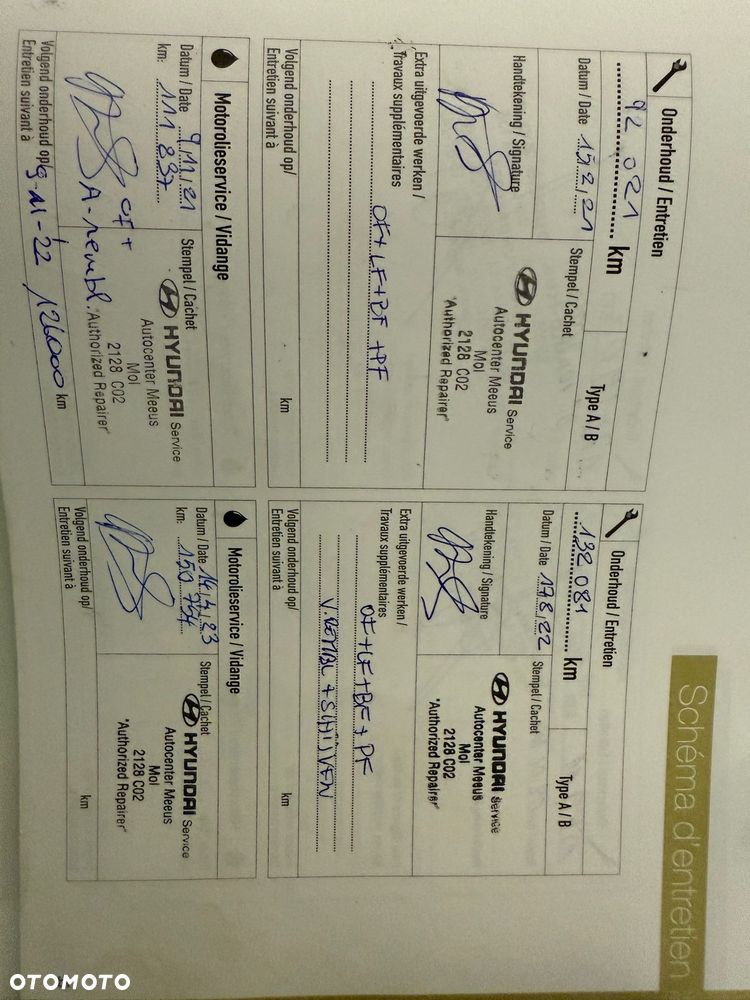 Schéma d'entretien
Onderhoud / Entretien
92 021 km
Type A / B
Datum / Date 15.2.21
Stempel / Cachet
Handtekening / Signature
HYUNDAI Service
Autocenter Meeus
Mol
2128 C02
"Authorized Repairer"
Extra uitgevoerde werken /
Travaux supplémentaires
OF+LF+BF+PF
Volgend onderhoud op/
Entretien suivant à
km
Motorolieservice / Vidange
Datum / Date 9.11.21
km: 111 837
Stempel / Cachet
OF +
A-rembl.
HYUNDAI Service
Autocenter Meeus
Mol
2128 C02
"Authorized Repairer"
Volgend onderhoud op/
Entretien suivant à
9-11-22 / 126000 km
Onderhoud / Entretien
132 081 km
Type A / B
Datum / Date 17.8.22
Stempel / Cachet
Handtekening / Signature
HYUNDAI Service
Autocenter Meeus
Mol
2128 C02
"Authorized Repairer"
Extra uitgevoerde werken /
Travaux supplémentaires
OF+LF+BF+PF
V.REMBL + SCHIJVEN
Volgend onderhoud op/
Entretien suivant à
km
Motorolieservice / Vidange
Datum / Date 14.4.23
km: 150 754
Stempel / Cachet
HYUNDAI Service
Autocenter Meeus
Mol
2128 C02
"Authorized Repairer"
Volgend onderhoud op/
Entretien suivant à
km
OTOMOTO